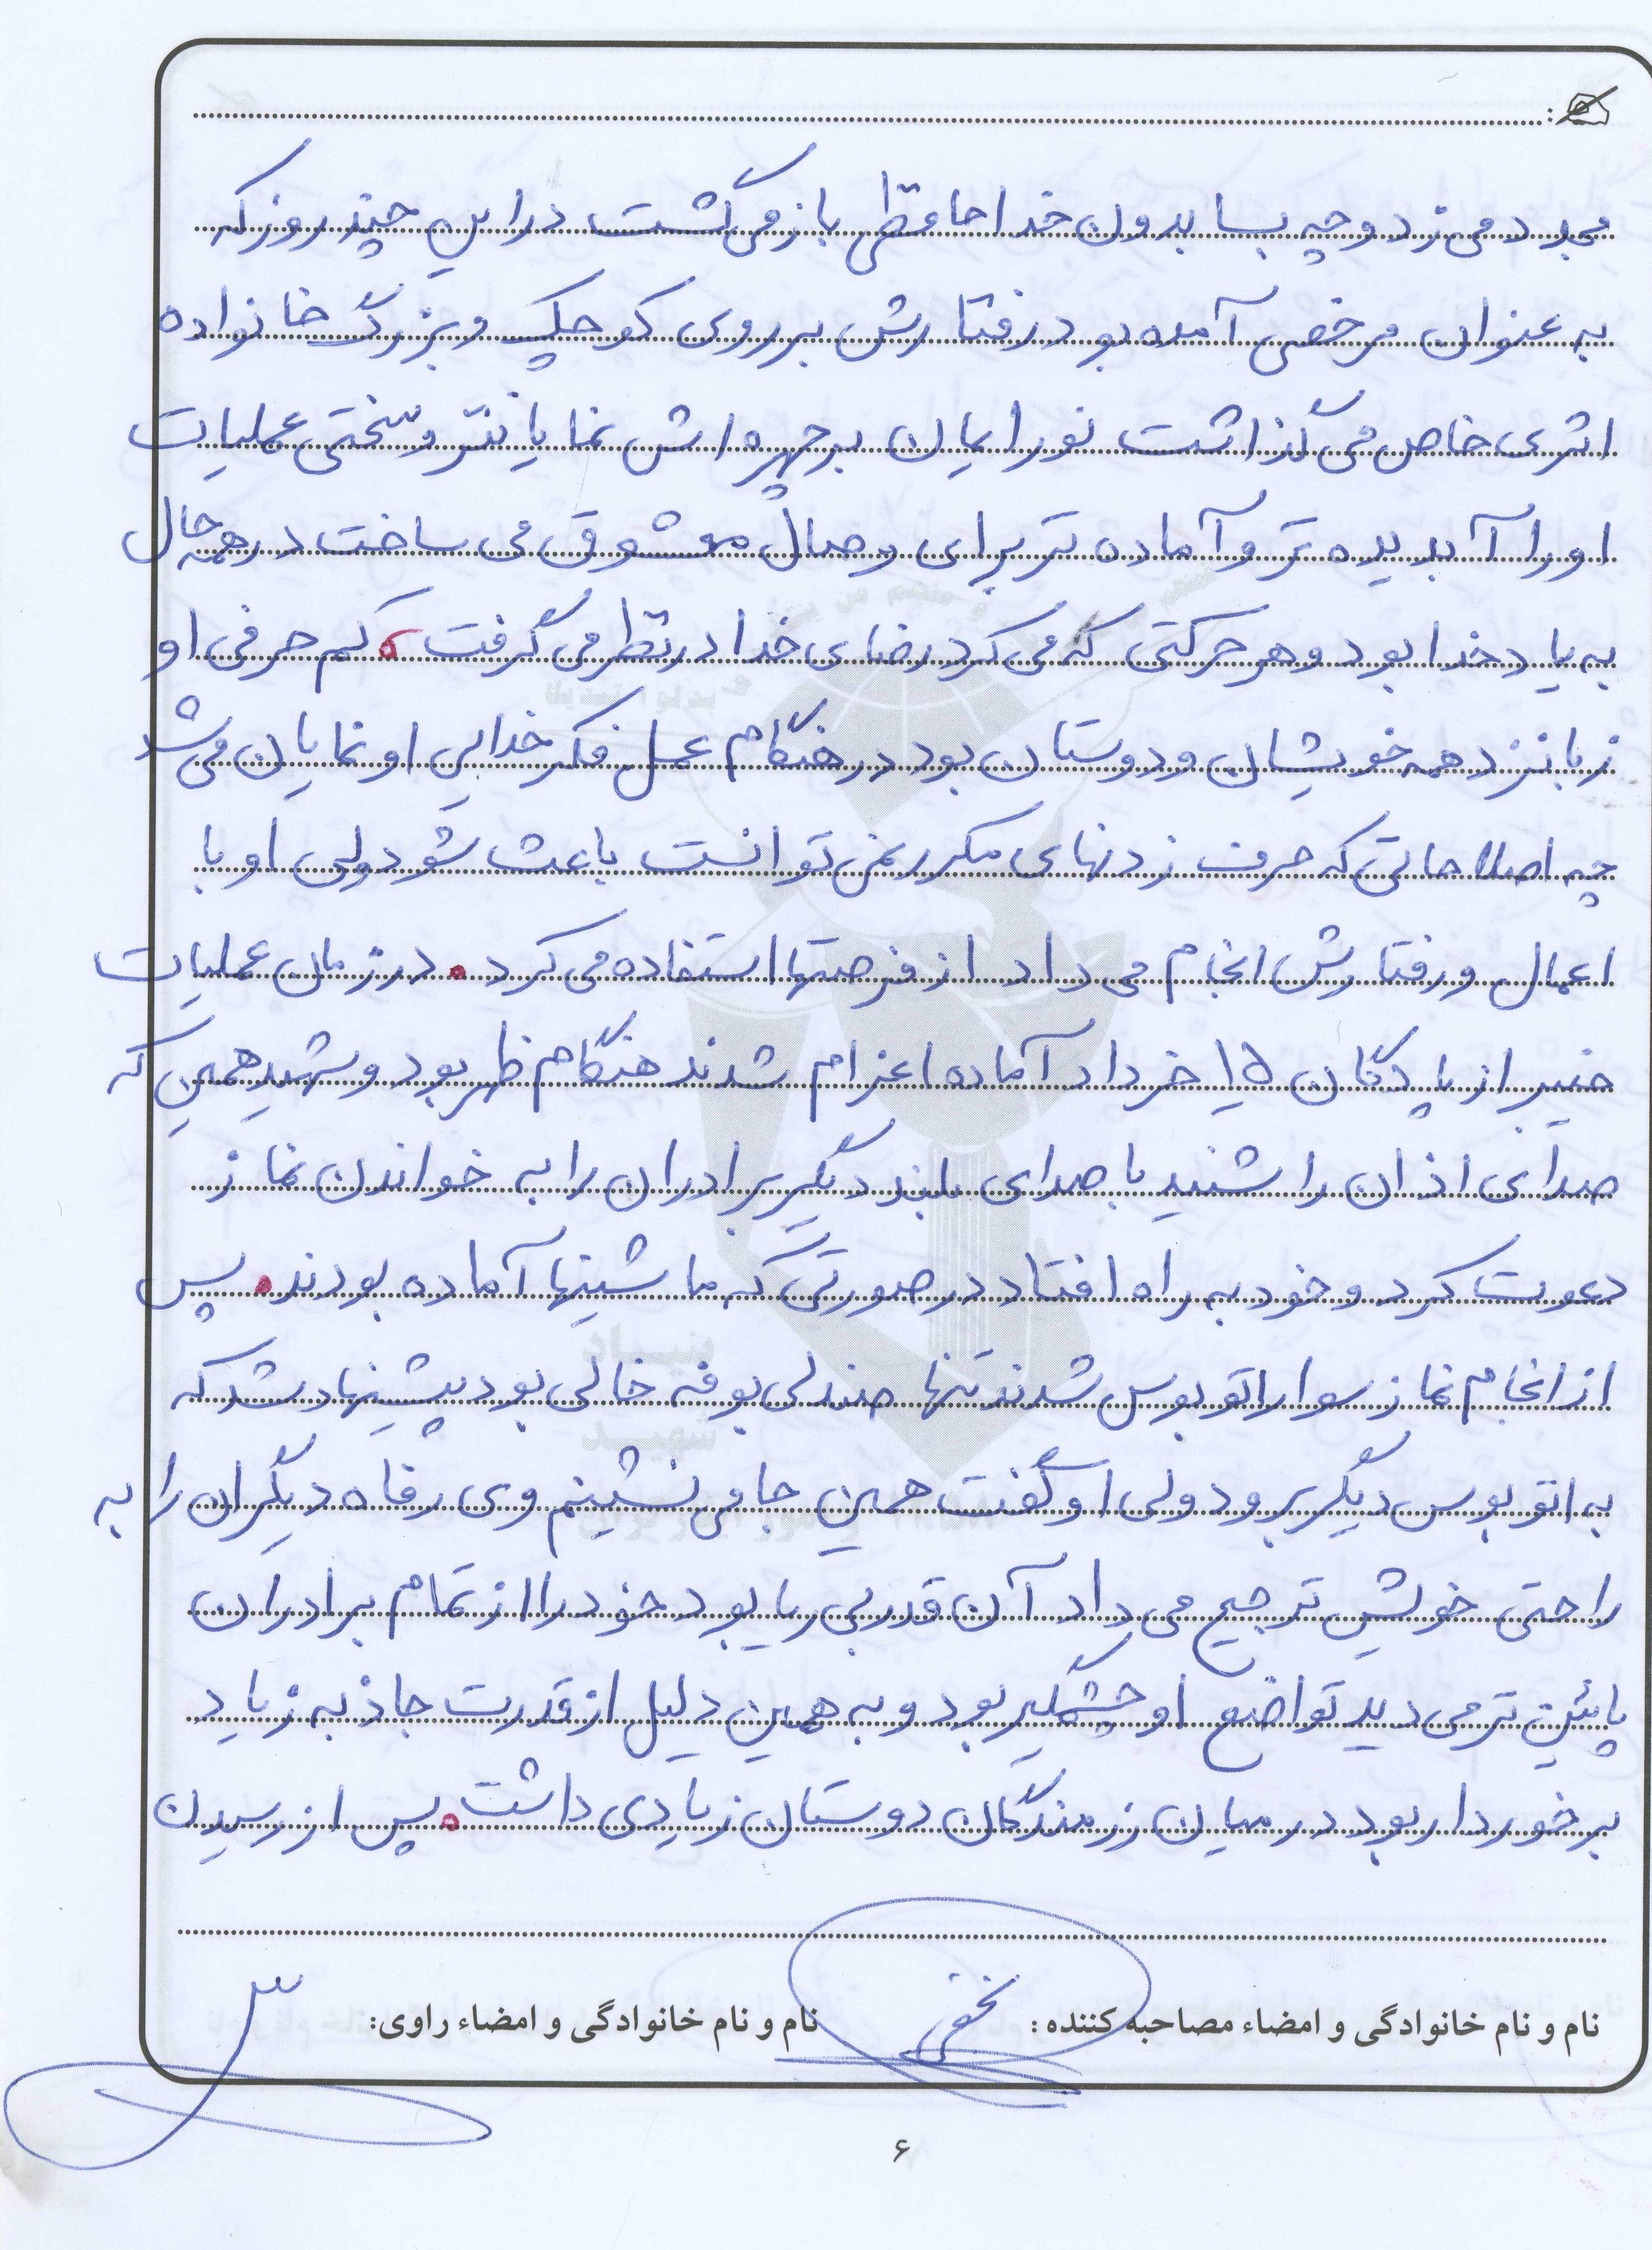 مجدد می زد و چه بسا بدون خداحافظی باز می گشت در این چند روز که
به عنوان مرخصی آمده بود رفتارش بر روی کوچک و بزرگ خانواده
اثری خاص می گذاشت نور ایمان بر چهره اش نمایانتر و سختی عملیات
او را آبدیده تر و آماده تر برای وصال معشوق می ساخت در همه حال
به یاد خدا بود و هر حرکتی که می کرد رضای خدا در نظر می گرفت، کم حرفی او
زبانزد همه خویشان و دوستان بود در هنگام عمل فکر خدایی او نمایان می شد
چه اصلاحاتی که حرف زدنهای مکرر نمی توانست باعث شود ولی او با
اعمال و رفتارش انجام می داد از فرصتها استفاده می کرد. در زمان عملیات
خیبر از پادگان ۱۵ خرداد آماده اعزام شدند هنگام ظهر بود و شهید همین که
صدای اذان را شنید با صدای بلند دیگر برادران را به خواندن نماز
دعوت کرد و خود به راه افتاد در صورتی که ماشینها آماده بودند. پس
از انجام نماز سوار اتوبوس شدند تنها صندلی بوفه خالی بود پیشنهاد شد که
به اتوبوس دیگر برود ولی او گفت همین جا می نشینم وی رفاه دیگران را به
راحتی خویش ترجیح می داد آن قدر بی ریا بود خود را از تمام برادران
پائین تر می دید تواضع او چشمگیر بود و به همین دلیل از قدرت جاذبه زیاد
برخوردار بود در میان رزمندگان دوستان زیادی داشت. پس از رسیدن
نام و نام خانوادگی و امضاء مصاحبه کننده: نام و نام خانوادگی و امضاء راوی:
۶